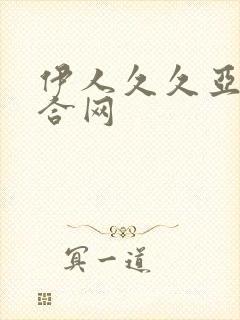 伊人久久亞
合网
冥一道